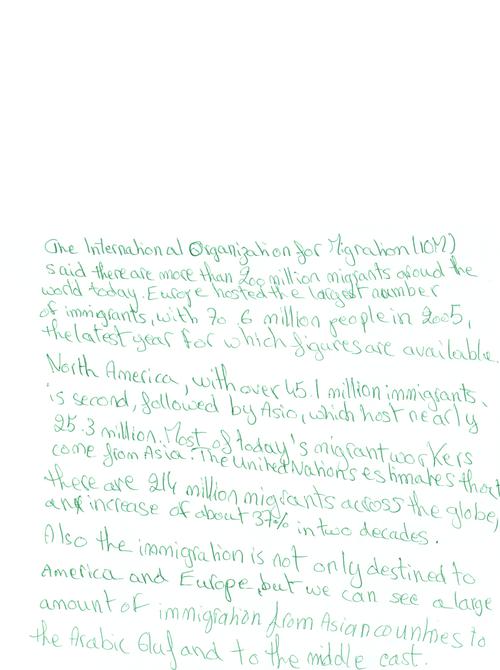 The International Organization for Migration (IOM)
said there are more than 200 million migrants aroud the
world today. Europe hosted the largest number
of immigrants, with 70.6 million people in 2005,
the latest year for which figures are available.
North America, with over 45.1 million immigrants,
is second, followed by Asia, which host nearly
25.3 million. Most of today's migrant workers
come from Asia. The United Nations estimates that
there are 214 million migrants across the globe,
an increase of about 37% in two decades.
Also the immigration is not only destined to
America and Europe, but we can see a large
amount of immigration from Asian countries to
the Arabic Gulf and to the middle east.